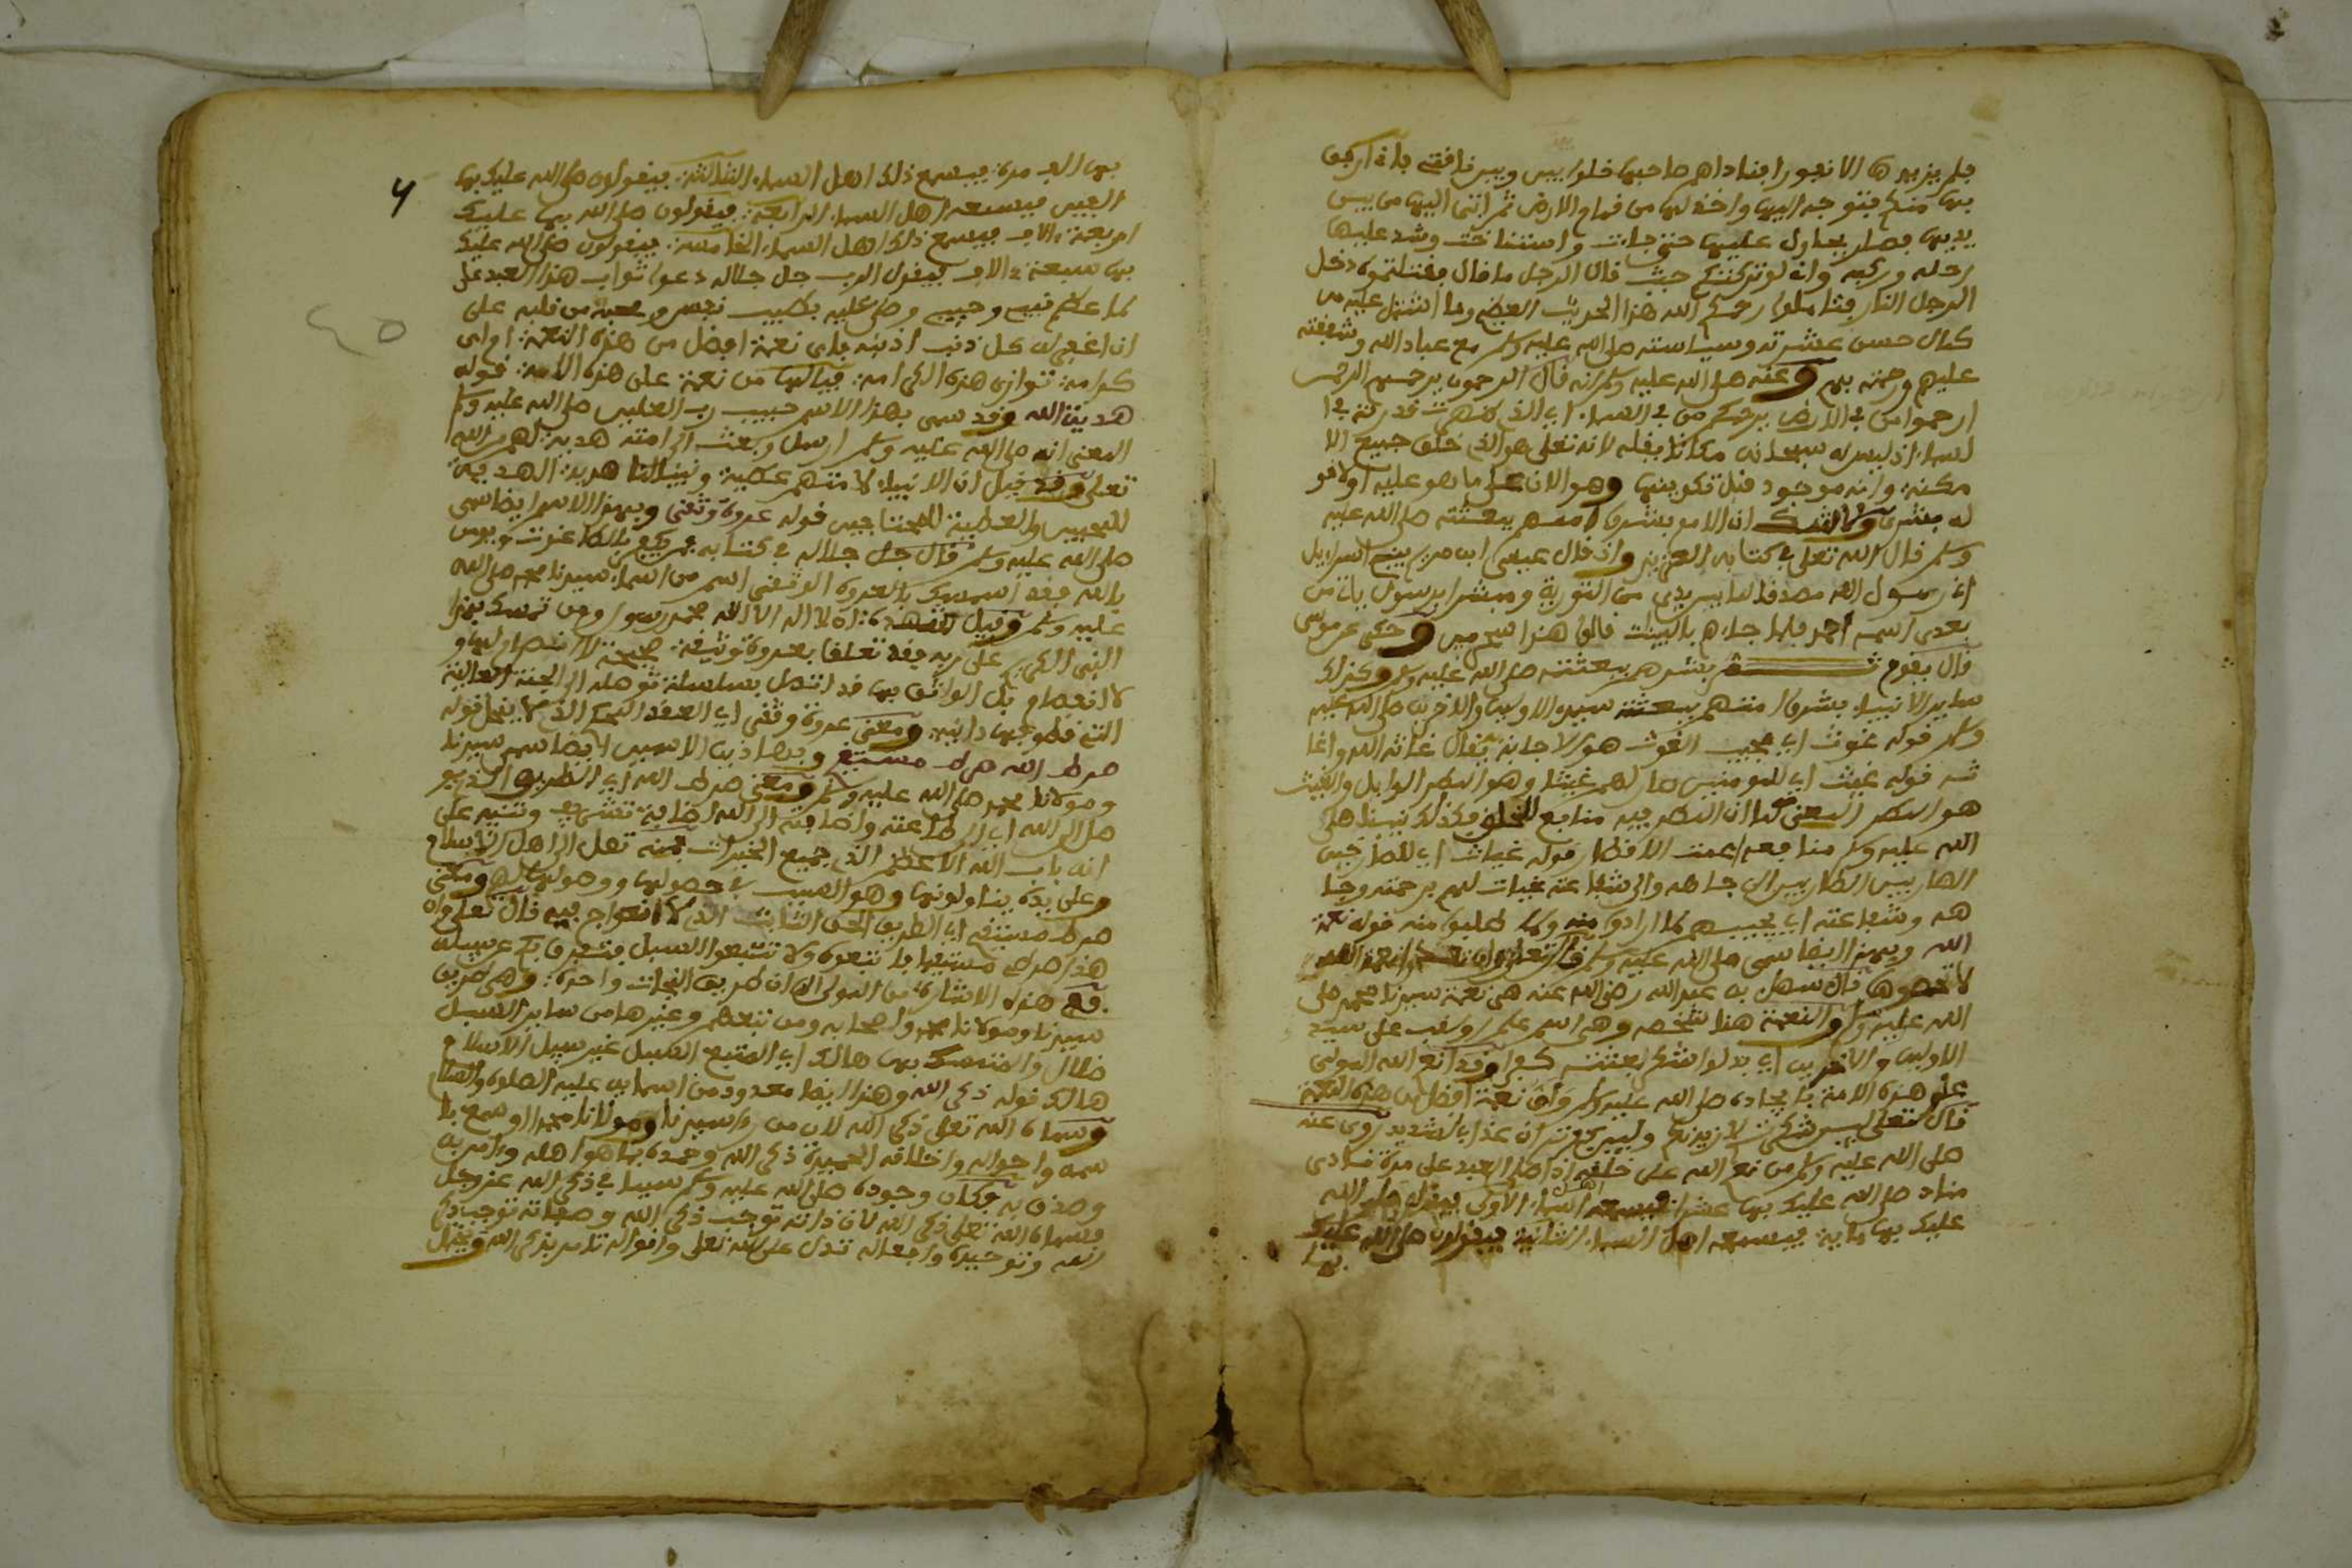 فلم يزيدوها الا نفورا فناداهم صاحبها خلوا بيني وبين ناقتي فاني ارفق
بها منكم فتوجه اليها واخذ لها من قمام الارض ثم اتى اليها من بين
يديها فصار يحاول عليها حتى جاءت واستناخت وشد عليها
رحله وركبه وانى لو تركتكم حيث قال الرجل ما قال فقتلتموه دخل
الرجل النار فتاملوا رحمكم الله هذا الحديث العظيم وما اشتمل عليه من
كمال حسن عشرته وسياسته صلى الله عليه وسلم مع عباد الله وشفقته
عليهم ورحمته بهم وعنه صلى الله عليه وسلم انه قال الرحمون يرحمهم الرحمن
ارحموا من في الارض يرحمكم من في السماء اي الذي ظهرت قدرته في ا
لسماء اذ ليس له سبحانه مكانا يقله لانه تعلى هو الذي خلق جميع الا
مكنة وانه موجود قبل تكوينها وهو الان على ما هو عليه اولا قو
له بشرى ان الامم بشروا اممهم ببعثته صلى الله عليه
وسلم قال الله تعلى في كتابه العزيز واذ قال عيسى ابن مريم يبني اسرايل
اني رسول الله مصدقا لما بين يدي من التورية ومبشرا برسول ياتي من
بعدي اسمه احمد فلما جاءهم بالبينات قالوا هذا سحر مبين وحكى عن موسى
قال يقوم بشرهم ببعثته صلى الله عليه وسلم وكذلك
ساير الانبياء بشروا اممهم ببعثته سيد الاولين والاخرين صلى الله عليه
وسلم قوله غوث اي مجيب الغوث هو الاجابة يقال غاثه الله واغا
ثه قوله غيث اي للمومنين صار لهم غيثا وهو المطر الوابل والغيث
هو المطر المعنى كما ان المطر فيه منافع للخلق فكذلك نبينا صلى
الله عليه وسلم منافعه عمت الاقطار قوله غياث اي للصارخين
الهاربين الطاربين الى جاهه والى شفاعته غياث لهم برحمته وجا
هه وشفاعته اي يجيبهم كلما ارادوا منه وكلما طلبوا منه قوله نعمة
الله وبهذا ايضا سمي صلى الله عليه وسلم قال تعلى وان تعدوا نعمة الله
لا تحصوها قال سهل بن عبد الله رضي الله عنه هي نعمة سيدنا محمد صلى
الله عليه وسلم والنعمة هنا شخصه وهي اسم علم اولقب على سيد
الاولين والاخرين اي بدلوا شكر بعثته كفرا وقد انعم الله المولى
على هذه الامة بايجاده صلى الله عليه وسلم واي نعمة افضل من هذه النعمة
قال تعلى لين شكرتم لازيدنكم ولين كفرتم ان عذابي لشديد روي عنه
صلى الله عليه وسلم من نعم الله على خلقه اذا صلى العبد علي مرة نادى
مناد صلى الله عليك بها عشرا فيسمعه اهل السماء الاولى فيقولون صلى الله
عليك بها ماية فيسمعه اهل السماء الثانية فيقولون صلى الله عليك
بها
4
بها الف مرة فيسمع ذلك اهل السماء الثالثة فيقولون صلى الله عليك بها
الفين فيسمعه اهل السماء الرابعة فيقولون صلى الله بها عليك
اربعة الاف فيسمع ذلك اهل السماء الخامسة فيقولون صلى الله عليك
بها سبعة الاف فيقول الرب جل جلاله دعوا ثواب هذا العبد علي
كما عظم نبيي وحبيبي وصلى عليه بطيب نفس ومحبة من قلبه علي
ان اغفر له كل ذنب اذنبه فاي نعمة افضل من هذه النعمة او اي
كرامة توازي هذه الكرامة فيالها من نعمة على هذه الامة قوله
هدية الله وقد سمي بهذا الاسم حبيب رب العلمين صلى الله عليه وسلم
المعنى انه صلى الله عليه وسلم ارسل وبعث الى امته هدية لهم من الله
تعلى وقد قيل ان الانبياء لاممهم عطية ونبينا لنا هدية الهدية
للمحبين والعطية للمحتاجين قوله عروة وثقى وبهذا الاسم ايضا سمي
صلى الله عليه وسلم قال جل جلاله في كتابه فمن يكفر بالطاغوت ويومن
بالله فقد استمسك بالعروة الوثقى اسم من اسماء سيدنا محمد صلى الله
عليه وسلم وقيل شهادة ان لا اله الا الله محمد رسول ومن تمسك بهذا
النبي الكريم على ربه فقد تعلق بعروة وثيقة صحيحة لا انفصام لها و
لا انفصام بل الواثق بها قد اتصل بسلسلة توصله الى الجنة العالية
التي قطوفها دانية ومعنى عروة وثقى اي العقد المحكم الذي لا ينحل قوله
صرط الله صرط مستقيم وبهاذين الاسمين ايضا سمي سيدنا
ومولانا محمد صلى الله عليه وسلم ومعنى صرط الله اي الطريق الذي يو
صل الى الله اي الى طاعته واضافته الى الله اضافة تشريف وتنبيه على
انه باب الله الاعظم الذي جميع الخيرات منه تصل الى اهل الاسلام
وعلى يده يناولونها وهو السبب في حصولها ووصولها لهم ومعنى
صرط مستقيم اي الطريق الحق الثابت الذي لا اعوجاج فيه قال تعلى وان
هذا صرطي مستقيما فاتبعوه ولا تتبعوا السبل فتفرق بكم عن سبيله
فمع هذه الاشارة من المولى الى ان طريق النجات واحدة وهي طريق
سيدنا ومولانا محمد واصحابه ومن تبعهم وغيرها من ساير السبل
ضلال والمتمسك بها هالك اي المتبع السبيل غير سبيل الاسلام
هالك قوله ذكر الله وهذا ايضا معدود من اسمايه عليه الصلوة والسلام
وسماه الله تعلى ذكر الله لان من راى سيدنا ومولانا محمدا وسمع با
سمه واحواله واخلاقه الحميدة ذكر الله وحمده بما هو اهله وامن به
وصدق به فكان وجوده صلى الله عليه وسلم سببا في ذكر الله عز وجل
فسماه الله تعلى ذكر الله لان ذاته توجب ذكر الله وصفاته توجب ذكر
الله وتوحيده وافعاله تدل على الله تعلى واقواله تامر بذكر الله وقيل